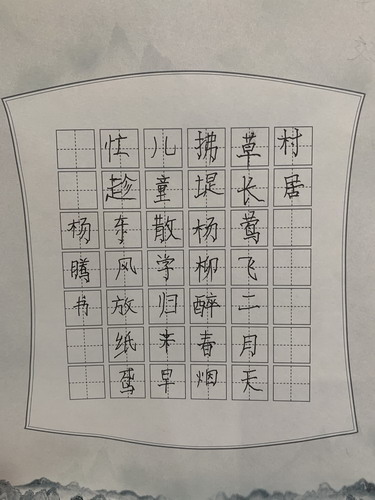 村居
草长莺飞二月天
拂堤杨柳醉春烟
儿童散学归来早
忙趁东风放纸鸢
杨腾书